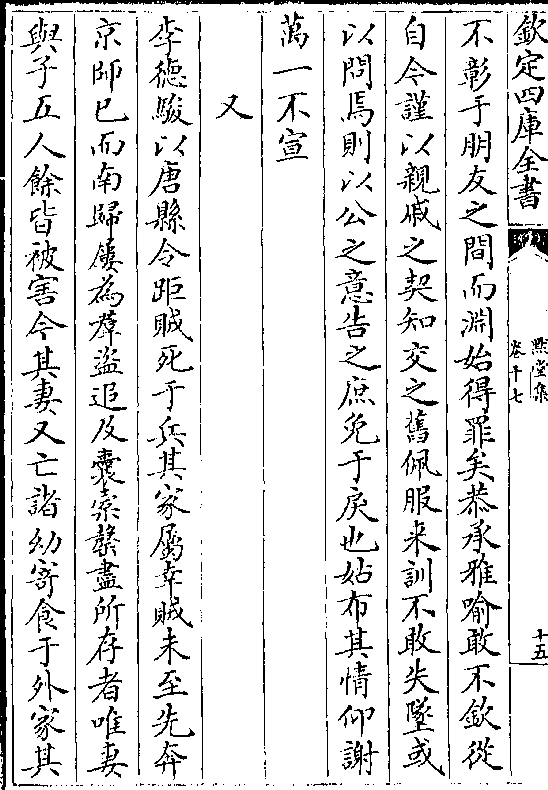 欽定四庫全書
黙堂集
卷十七
十五
不彰于朋友之間而淵始得罪矣恭承雅喻敢不欽從
自今謹以親戚之契知交之舊佩服来訓不敢失墜或
以問焉則以公之意告之庶免于戾也姑布其情仰謝
萬一不宣
又
李德駿以唐縣令距賊死于兵其家屬幸賊未至先奔
京師已而南歸屢為羣盜追及囊橐罄盡所存者唯妻
與子五人餘皆被害今其妻又亡諸幼寄食于外家其